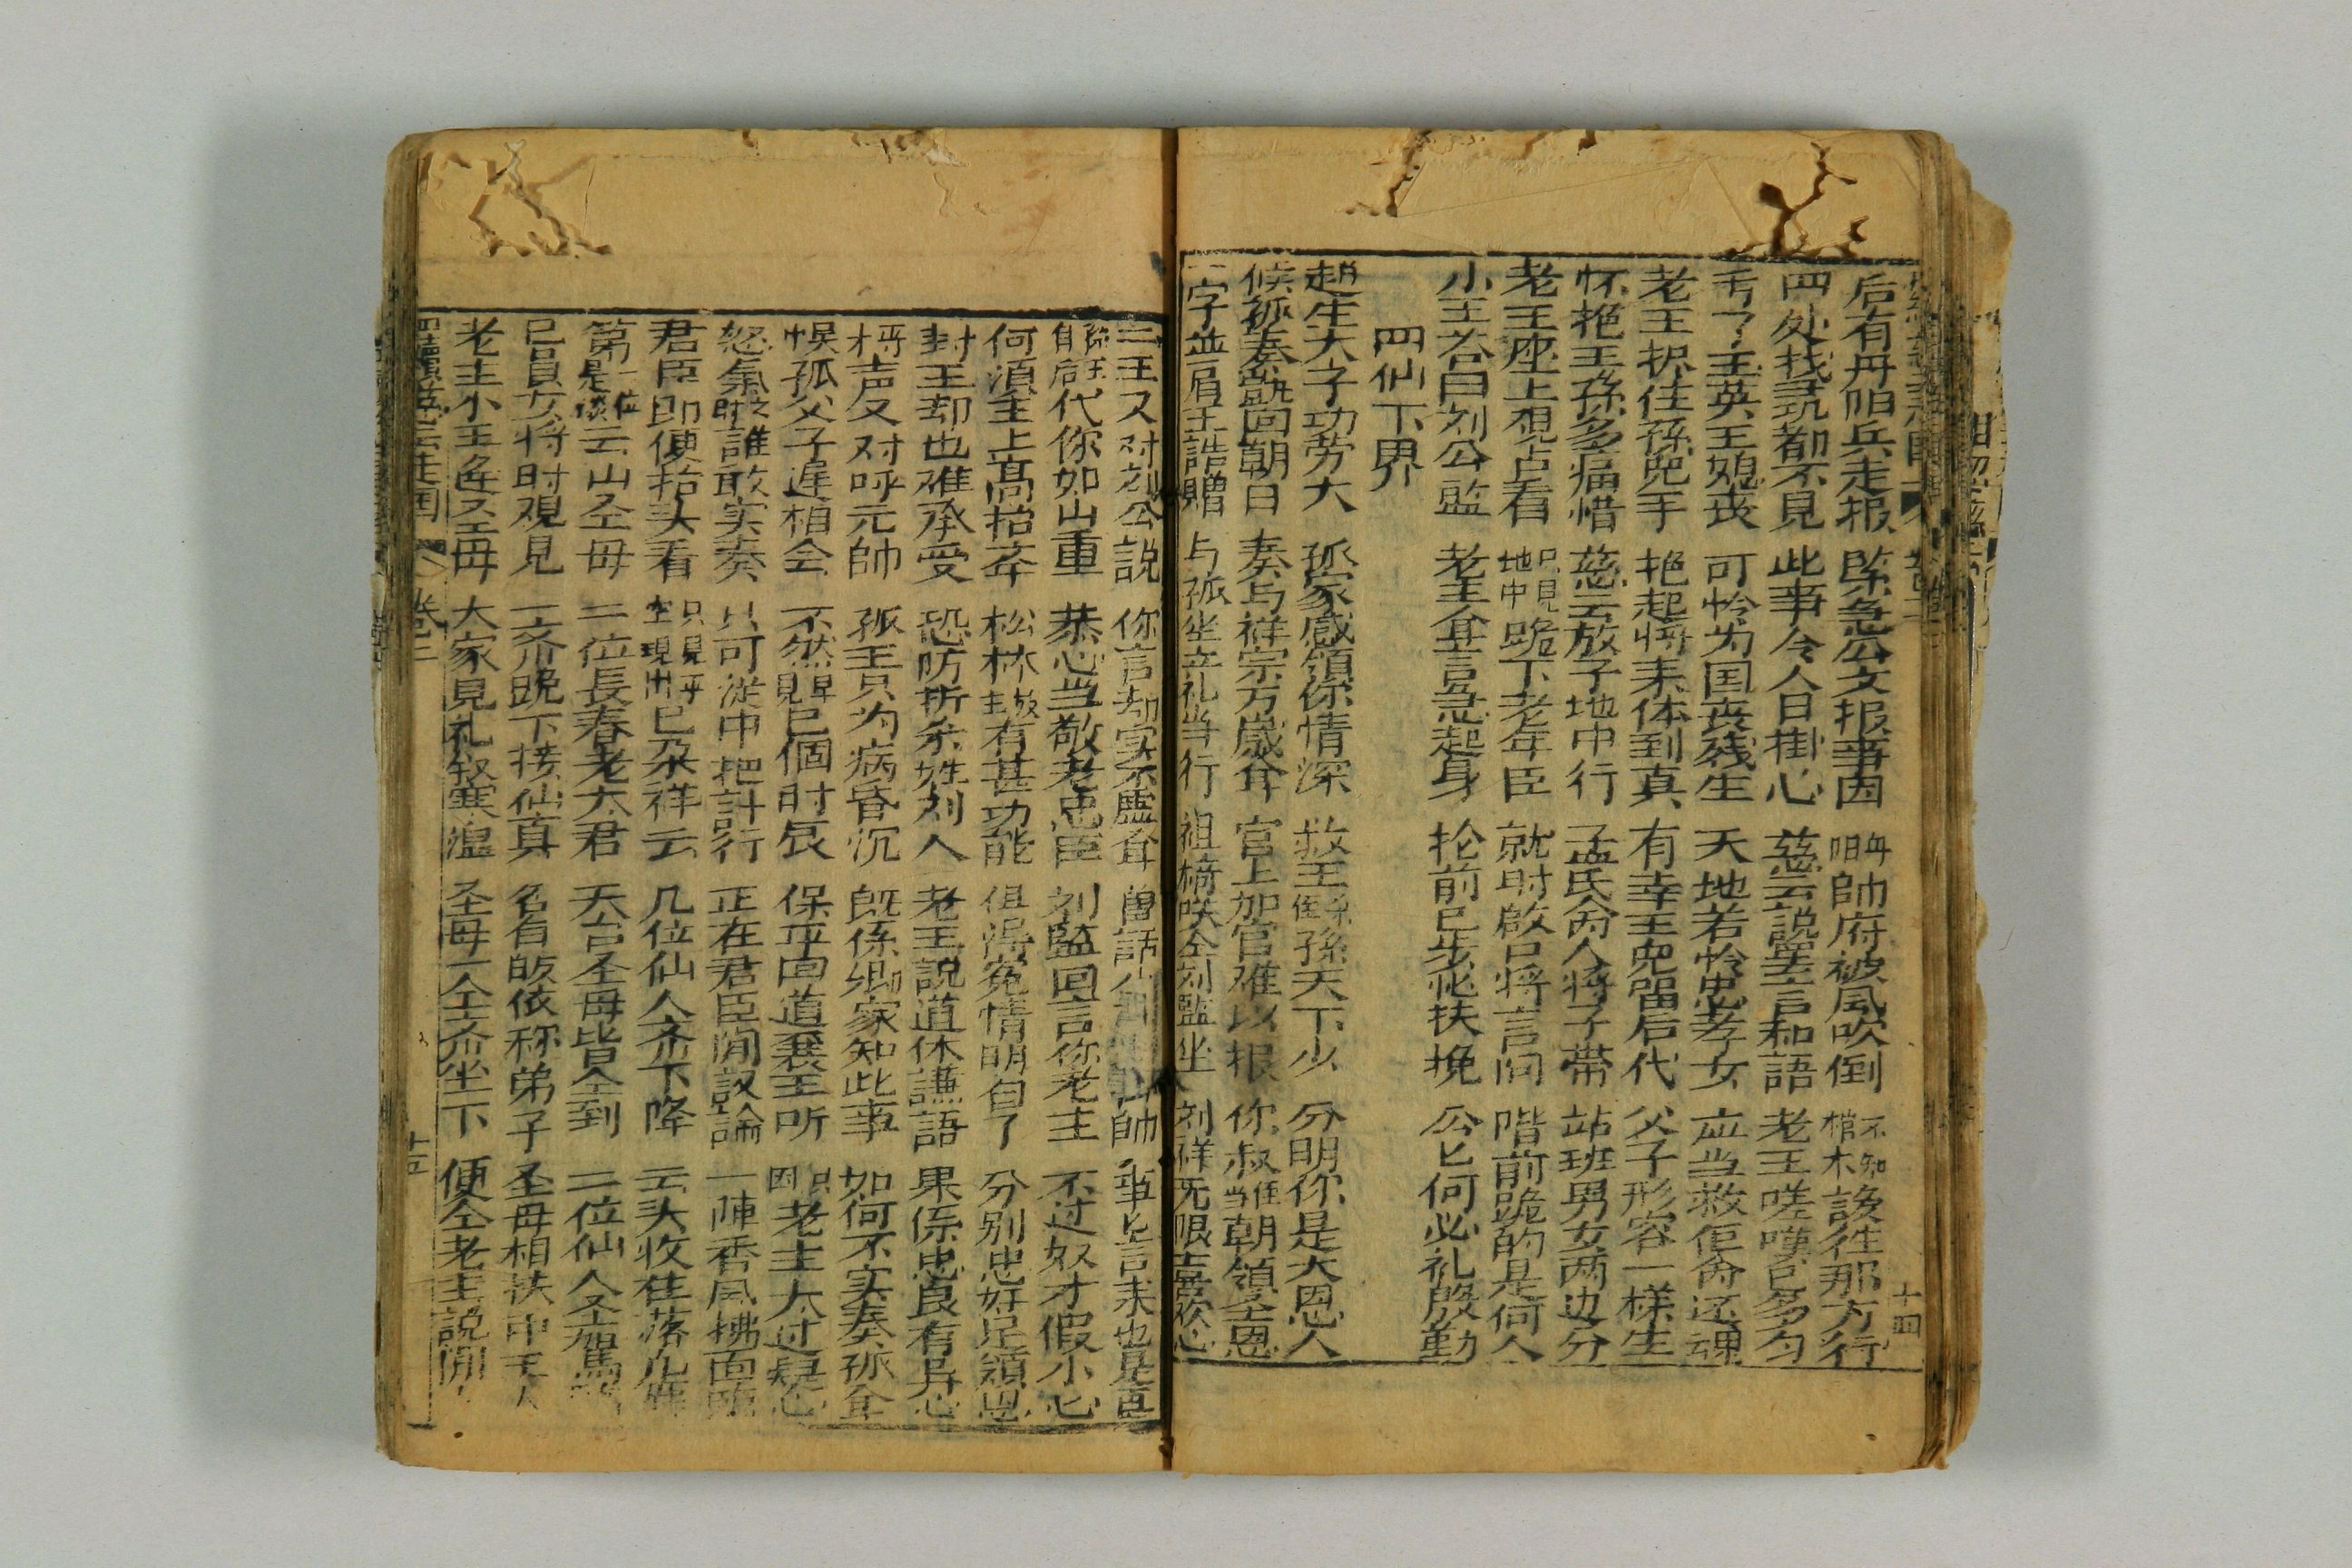 后有丹阳兵走报 緊急公文报事因 丹阳帥府被風吹倒 不知棺木該往那方行
四处找尋都不見 此事令人日掛心 慈云說罢言和語 老王嗟嘆已多勻
亐了王英王媳丧 可怜为国丧残生 天地若怜忠孝女 应当救佢命还魂
老王抧住孫兒手 抱起將来体到真 有幸王兒留后代 父子形容一様生
怀抱王孫多痛惜 慈云放子地中行 孟氏夫人將子帶 站班男女两边分
老王座上覌占看 只見地中跪下老年臣 就时啟口將言问 階前跪的是何人
小王答曰刘公監 老王仝言急起身 抡前已步忙扶挽 公匕何必礼殷勤
四仙下界
趙生大子功劳大 孤家感領你情深 救王係孫天下少 分明你是大恩人
候孤奏凱回朝日 奏与祥宗万歲耸 官上加官难以报 你叔当在朝領圣恩
一字並肩王誥贈 与孤坐立礼当行 祖 咲仝刘監坐 刘祥旡限喜欢心
二王又对刘公說 你言却实不虚耸 曽話
代你如山重 恭心当敬老忠臣 刘監回言你老主 不过奴才假小心
何湏主上高抬奔 松林 有甚功能 俱得冤情明白了 分别忠奸足領恩
封王却也难承受 恐防折杀姓刘人 老王說道休謙語 果係忠良有异心
声又对呼元帥 孤王只为病昏沉 既係卿家知此事 如何不实奏孤耸
悞孤父子遅相会 不然早見已個时辰 保平回道襄王听 只因老主大过疑心
怒氣之时誰敢实奏 只可淣中把計行 正在君臣閒議論 一陣香風拂面臨
君臣即便抬头看 只見半空現出已朵祥云 几位仙人齐下降 云头收住落凡
第一位是 云山圣母 二位長春老太君 天台圣母皆仝到 二位仙人圣駕
已員女將时覌見 一齐跪下接仙真 名有皈依称弟子 圣母相扶中
老主小王逢圣母 大家見礼叙寒温 圣母一仝齐坐下 便仝老主說
十四
卷三